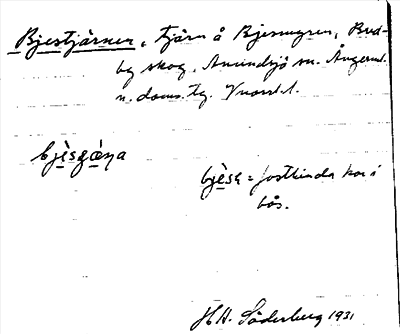 Bjestjärnen, tjärn å Bjesmyren, Bred-
by skog, Anundsjö sn. Ångerml.
n. doms. tg. Vnorrl. l.
bjèsgæ̀ṇa
bjèsa = fastbinda kor i
bås.
H. A. Söderberg 1931